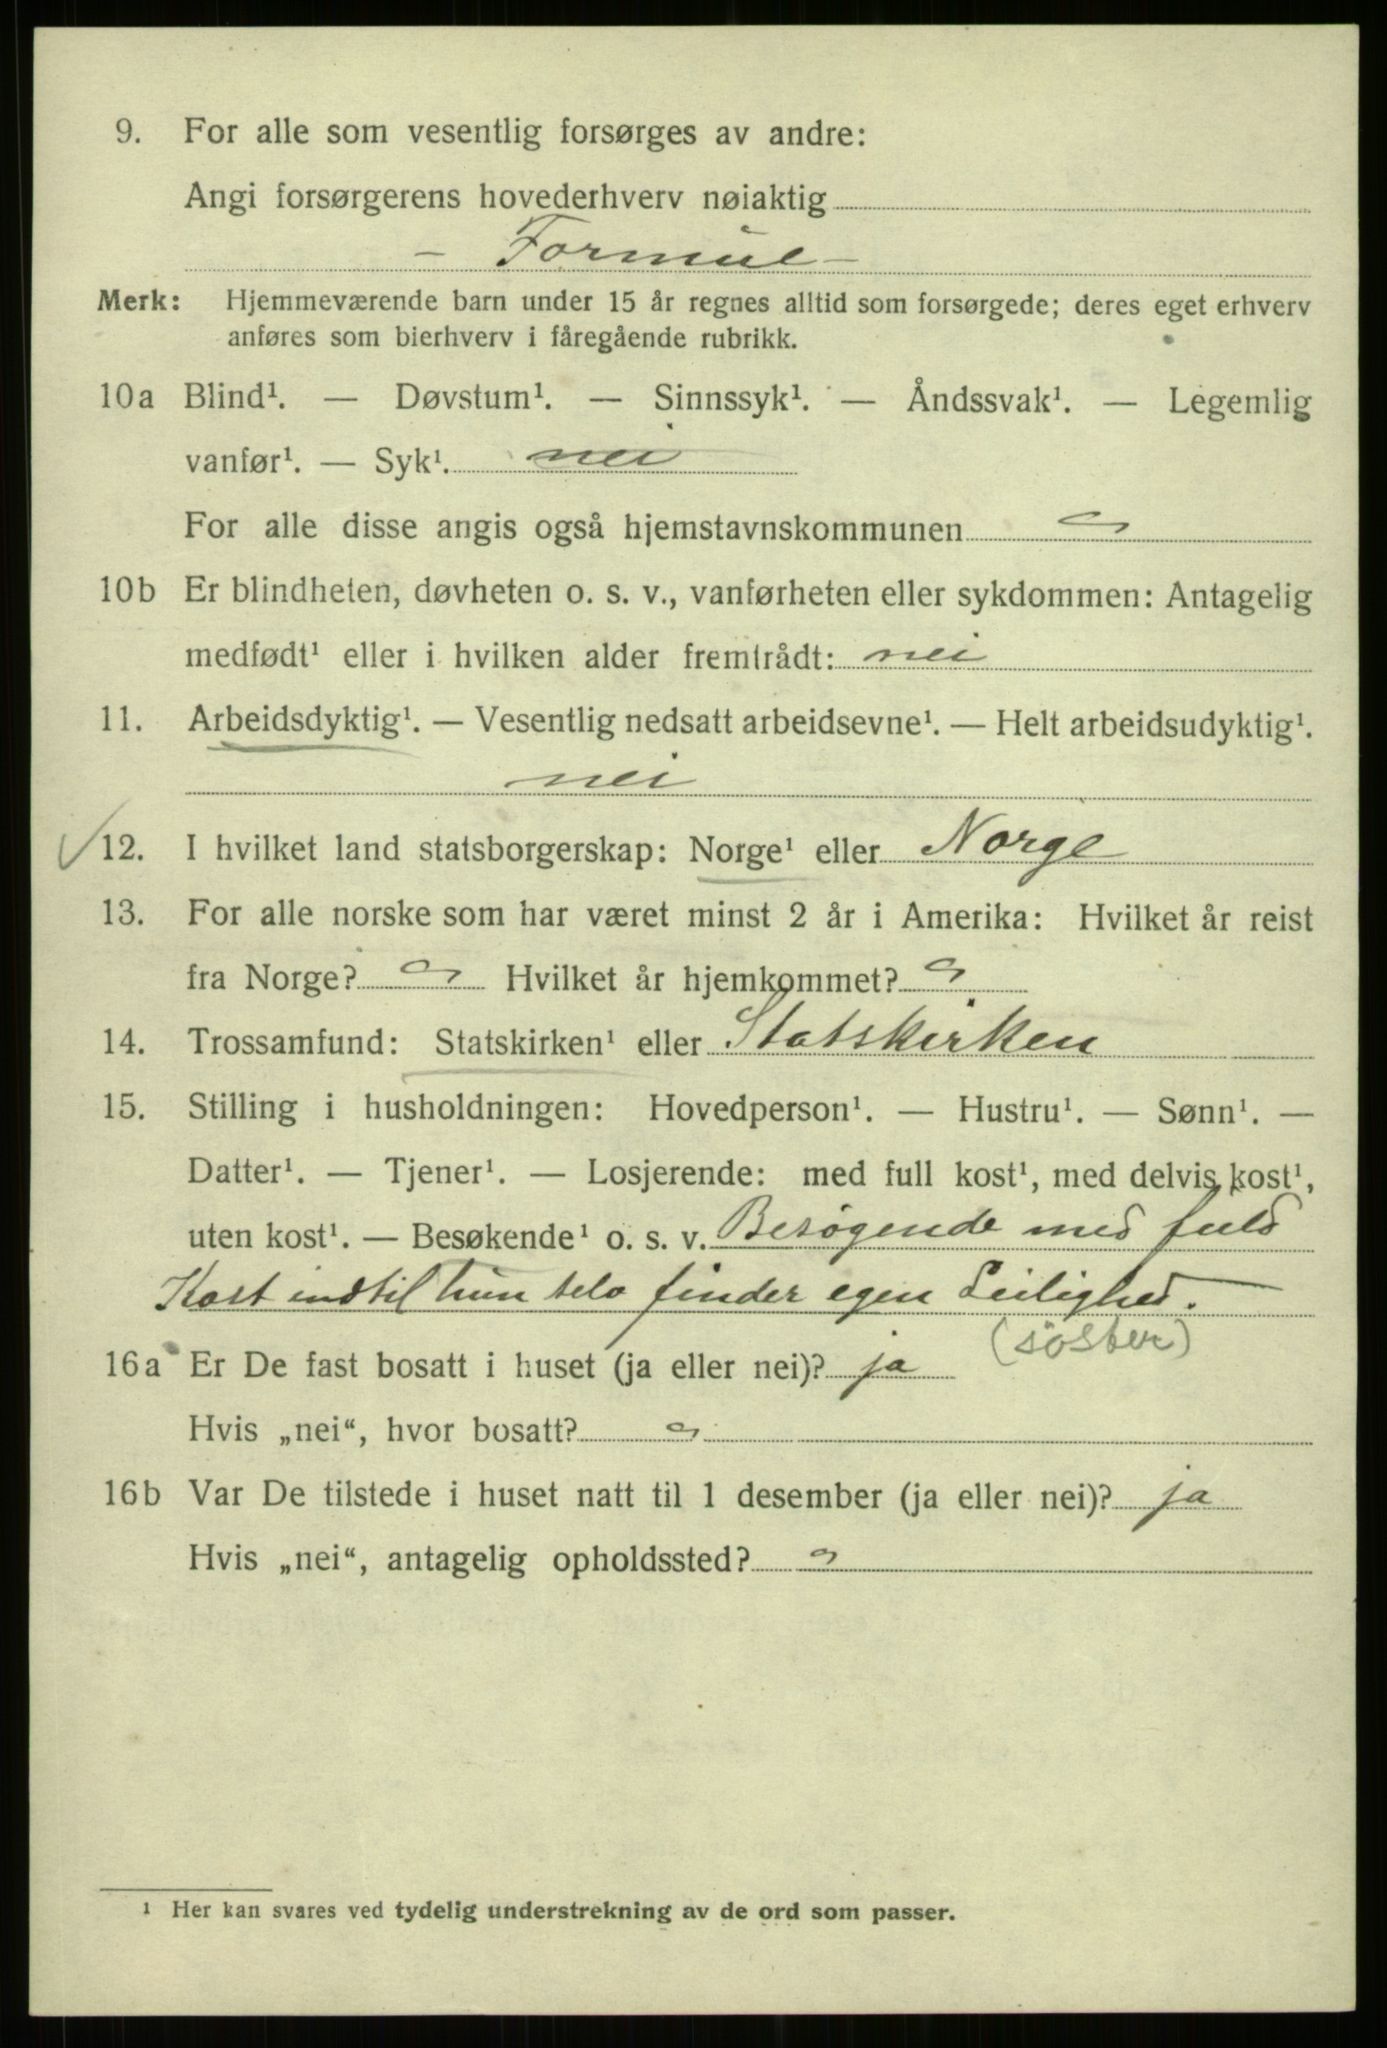 9. For alle som vesentlig forsørges av andre:
Angi forsørgerens hovederhverv nøiaktig
— Formue —
Merk: Hjemmeværende barn under 15 år regnes alltid som forsørgede; deres eget erhverv
anføres som bierhverv i fåregående rubrikk.
10a Blind¹. — Døvstum¹. — Sinnssyk¹. — Åndssvak¹. — Legemlig
vanfør¹. — Syk¹. nei
For alle disse angis også hjemstavnskommunen
10b Er blindheten, døvheten o. s. v., vanførheten eller sykdommen: Antagelig
medfødt¹ eller i hvilken alder fremtrådt: nei
11. Arbeidsdyktig¹. — Vesentlig nedsatt arbeidsevne¹. — Helt arbeidsudyktig¹.
nei
12. I hvilket land statsborgerskap: Norge¹ eller Norge
13. For alle norske som har været minst 2 år i Amerika: Hvilket år reist
fra Norge? Hvilket år hjemkommet?
14. Trossamfund: Statskirken¹ eller Statskirken
15. Stilling i husholdningen: Hovedperson¹. — Hustru¹. — Sønn¹. —
Datter¹. — Tjener¹. — Losjerende: med full kost¹, med delvis kost¹,
uten kost¹. — Besøkende¹ o. s. v. Besøgende med fuld
Kost indtil hun selv finder egen Leilighed.
(søster)
16a Er De fast bosatt i huset (ja eller nei)? ja
Hvis „nei“, hvor bosatt?
16b Var De tilstede i huset natt til 1 desember (ja eller nei)? ja
Hvis „nei“, antagelig opholdssted?
¹ Her kan svares ved tydelig understrekning av de ord som passer.